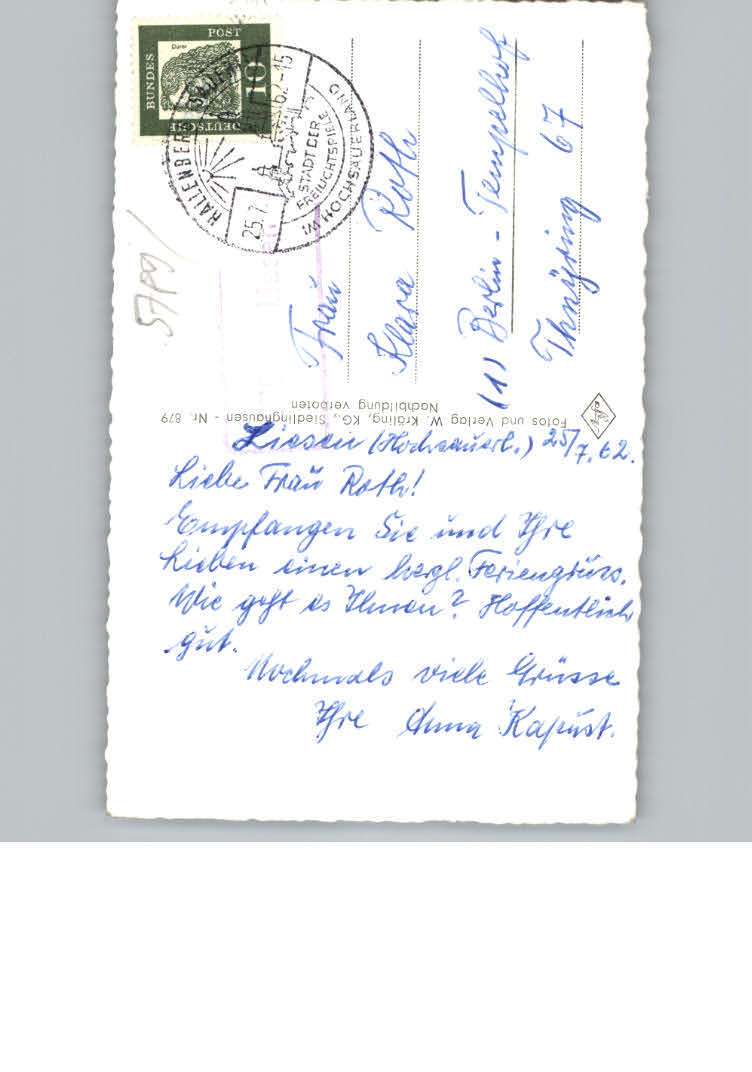 BUNDES
POST
Dürer
10
DEUTSCHE
HALLENBERG
25.7.62-15
STADT DER
FREILICHTSPIELE
IM HOCHSAUERLAND
5789
Frau
Klara Roth
(1) Berlin - Tempelhof
Thuyring 67
Fotos und Verlag W. Kräling, KG., Siedlinghausen - Nr. 879
Nachbildung verboten
Liesen (Hochsauerl.) 25/7.62.
Liebe Frau Roth!
Empfangen Sie und Ihre
Lieben einen herzl. Feriengruss.
Wie geht es Ihnen? Hoffentlich
gut.
Nochmals viele Grüsse
Ihre Anna Kapust.